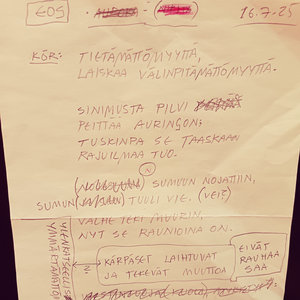 EOS
AURORA - 16.7.25
KÖR: TIETÄMÄTTÖMYYTTÄ,
LAISKAA VÄLINPITÄMÄTTÖMYYTTÄ.
SINIMUSTA PILVI
PEITTÄÄ AURINGON;
TUSKINPA SE TAASKAAN
RAJUILMAA TUO.
N
SUMUUN NOJATTIIN,
SUMUN TUULI VIE. (VEI?)
VALHE TEKI MUURIN,
NYT SE RAUNIOINA ON.
KÄRPÄSET LAIHTUVAT
JA TEKEVÄT MUUTTOA
EIVÄT
RAUHAA
SAA